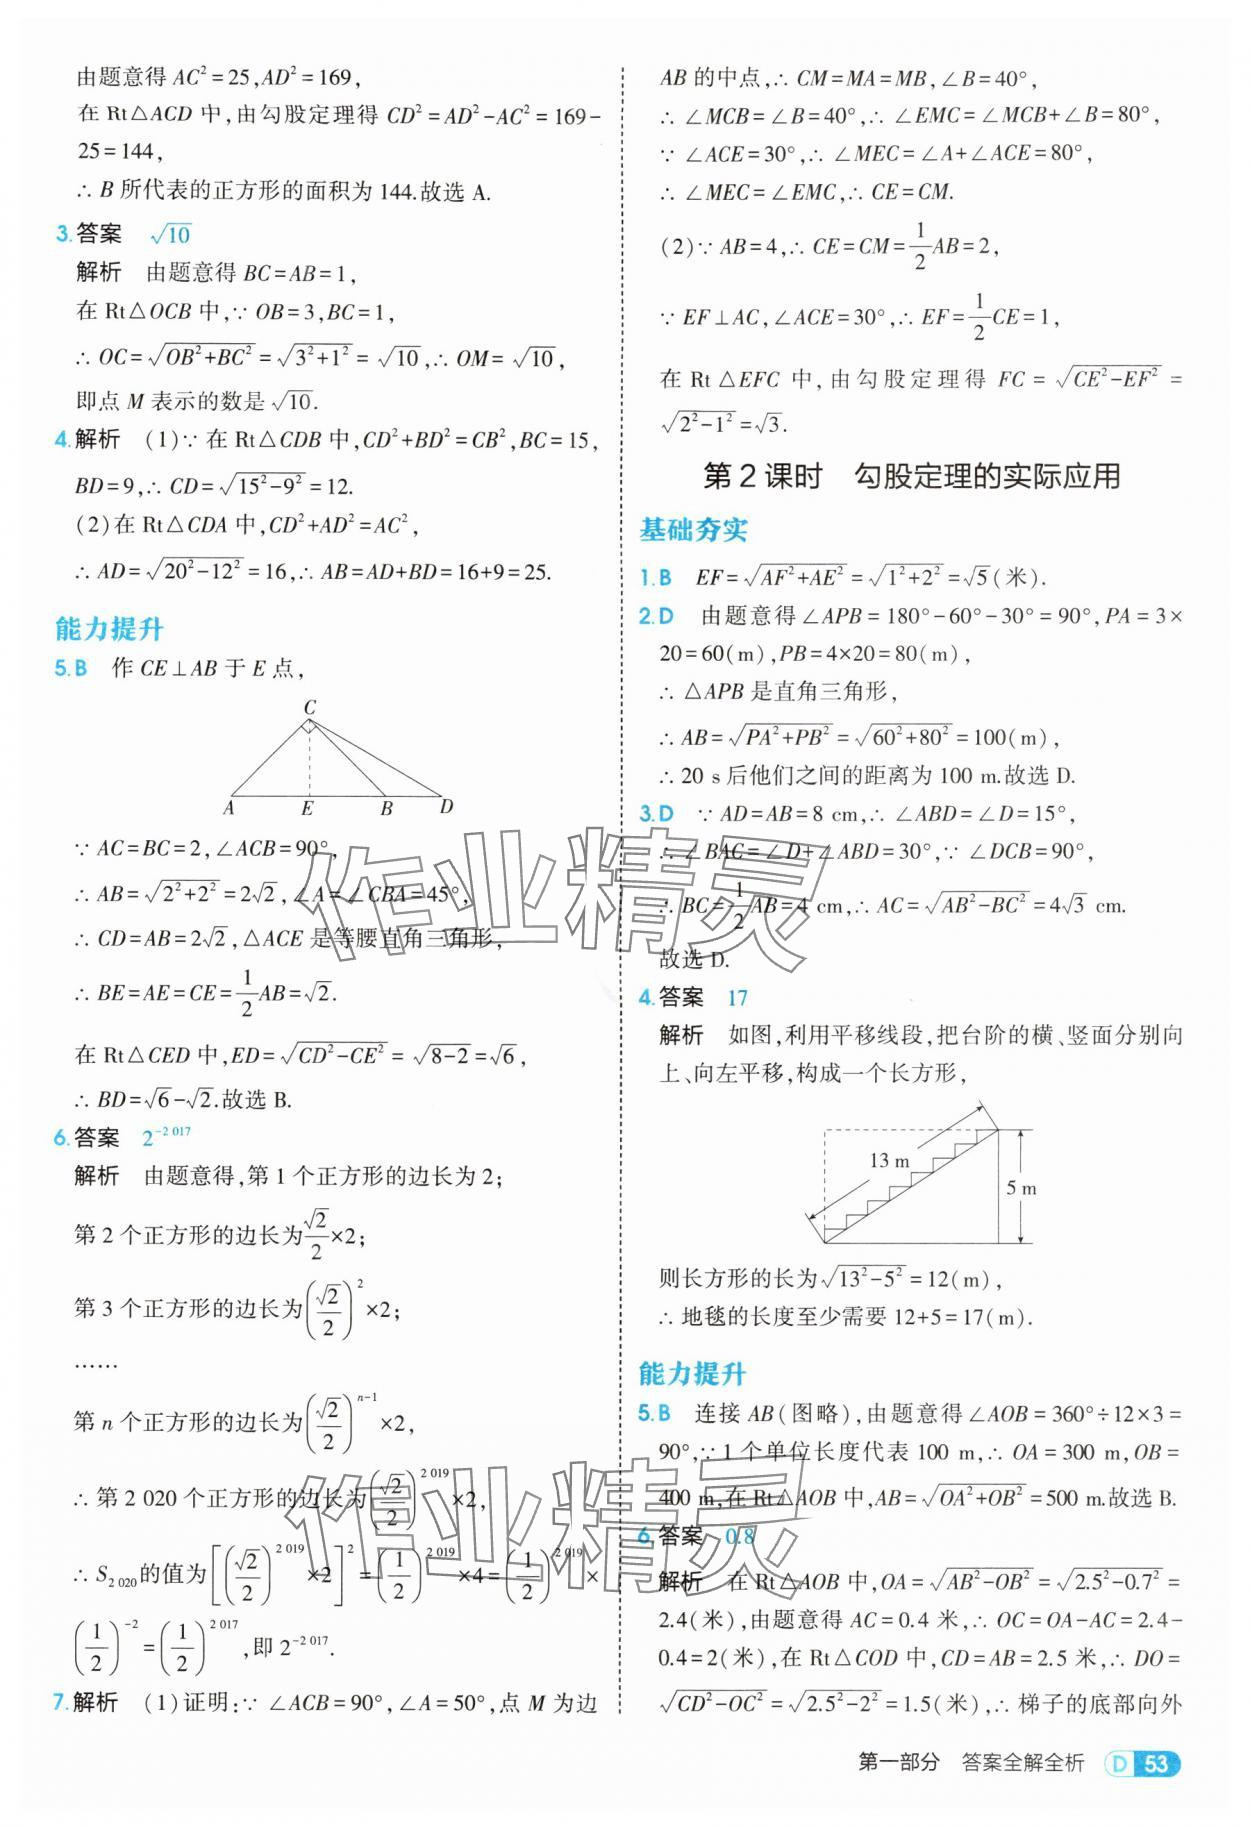 由题意得 AC²=25,AD²=169,
在 Rt△ACD 中,由勾股定理得 CD²=AD²-AC²=169-
25=144,
∴ B 所代表的正方形的面积为 144.故选 A.
3.答案 √10
解析 由题意得 BC=AB=1,
在 Rt△OCB 中,∵ OB=3,BC=1,
∴ OC=√(OB²+BC²)=√(3²+1²)=√10,∴ OM=√10,
即点 M 表示的数是√10.
4.解析 (1)∵ 在 Rt△CDB 中,CD²+BD²=CB²,BC=15,
BD=9,∴ CD=√(15²-9²)=12.
(2)在 Rt△CDA 中,CD²+AD²=AC²,
∴ AD=√(20²-12²)=16,∴ AB=AD+BD=16+9=25.
能力提升
5.B 作 CE⊥AB 于 E 点,
C
A E B D
∵ AC=BC=2,∠ACB=90°,
∴ AB=√(2²+2²)=2√2,∠A=∠CBA=45°,
∴ CD=AB=2√2,△ACE 是等腰直角三角形,
∴ BE=AE=CE=1/2AB=√2.
在 Rt△CED 中,ED=√(CD²-CE²)=√(8-2)=√6,
∴ BD=√6-√2.故选 B.
6.答案 2^(-2 017)
解析 由题意得,第 1 个正方形的边长为 2;
第 2 个正方形的边长为√2/2×2;
第 3 个正方形的边长为(√2/2)²×2;
……
第 n 个正方形的边长为(√2/2)^(n-1)×2,
∴ 第 2 020 个正方形的边长为(√2/2)^(2 019)×2,
∴ S₂ ₀₂₀的值为[(√2/2)^(2 019)×2]²=(1/2)^(2 019)×4=(1/2)^(2 019)×
(1/2)^(-2)=(1/2)^(2 017),即 2^(-2 017).
7.解析 (1)证明:∵ ∠ACB=90°,∠A=50°,点 M 为边
AB 的中点,∴ CM=MA=MB,∠B=40°,
∴ ∠MCB=∠B=40°,∴ ∠EMC=∠MCB+∠B=80°,
∵ ∠ACE=30°,∴ ∠MEC=∠A+∠ACE=80°,
∴ ∠MEC=∠EMC,∴ CE=CM.
(2)∵ AB=4,∴ CE=CM=1/2AB=2,
∵ EF⊥AC,∠ACE=30°,∴ EF=1/2CE=1,
在 Rt△EFC 中,由勾股定理得 FC=√(CE²-EF²)=
√(2²-1²)=√3.
第 2 课时 勾股定理的实际应用
基础夯实
1.B EF=√(AF²+AE²)=√(1²+2²)=√5(米).
2.D 由题意得∠APB=180°-60°-30°=90°,PA=3×
20=60(m),PB=4×20=80(m),
∴ △APB 是直角三角形,
∴ AB=√(PA²+PB²)=√(60²+80²)=100(m),
∴ 20 s 后他们之间的距离为 100 m.故选 D.
3.D ∵ AD=AB=8 cm,∴ ∠ABD=∠D=15°,
∴ ∠BAC=∠D+∠ABD=30°,∵ ∠DCB=90°,
∴ BC=1/2AB=4 cm,∴ AC=√(AB²-BC²)=4√3 cm.
故选 D.
4.答案 17
解析 如图,利用平移线段,把台阶的横、竖面分别向
上、向左平移,构成一个长方形,
13 m
5 m
则长方形的长为√(13²-5²)=12(m),
∴ 地毯的长度至少需要 12+5=17(m).
能力提升
5.B 连接 AB(图略),由题意得∠AOB=360°÷12×3=
90°,∵ 1 个单位长度代表 100 m,∴ OA=300 m,OB=
400 m,在 Rt△AOB 中,AB=√(OA²+OB²)=500 m.故选 B.
6.答案 0.8
解析 在 Rt△AOB 中,OA=√(AB²-OB²)=√(2.5²-0.7²)=
2.4(米),由题意得 AC=0.4 米,∴ OC=OA-AC=2.4-
0.4=2(米),在 Rt△COD 中,CD=AB=2.5 米,∴ DO=
√(CD²-OC²)=√(2.5²-2²)=1.5(米),∴ 梯子的底部向外
第一部分 答案全解全析 D 53
作业精灵
作业精灵